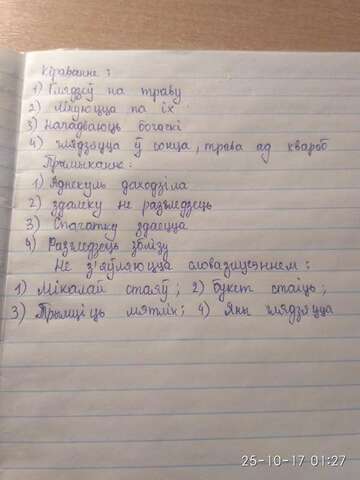 Кіраванне:
1) Глядзеў на траву
2) Мяшяюцца па іх
3) Нападваюць богаскі
4) глядзяцца ў сонца, трава ад хвароб
Прымыканне:
1) Аднекуль даходзіла
2) здалёку не разгледзець
3) Спачатку здаецца
4) Разгледзець зблізу
Не з'яўляюцца словазлучэннем:
1) Мікалай стаяў; 2) Букет стаіць;
3) Трымціць мятлік; 4) Яны глядзяцца
25-10-17 01:27